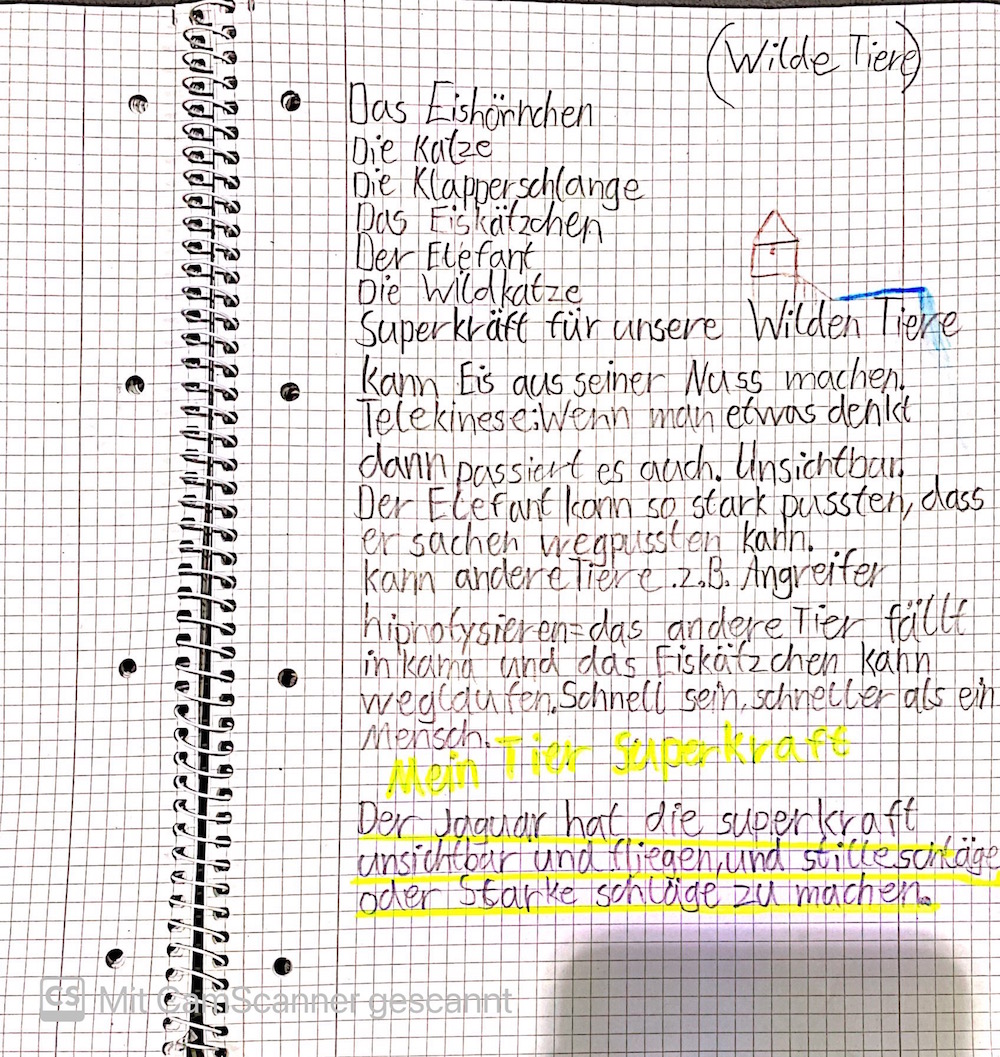 (Wilde Tiere)
Das Eishörnchen
Die Katze
Die Klapperschlange
Das Eiskätzchen
Der Elefant
Die Wildkatze
Superkräft für unsere Wilden Tiere
kann Eis aus seiner Nuss machen.
Telekinese:Wenn man etwas denkt
dann passiert es auch. Unsichtbar.
Der Elefant kann so stark pussten, dass
er sachen wegpussten kann.
kann andere Tiere .z.B. Angreifer
hipnotysieren=das andere Tier fällt
in kama und das Eiskätzchen kann
weglaufen. Schnell sein, schneller als ein
Mensch.
Mein Tier Superkraft
Der Jaguar hat die superkraft
unsichtbar und fliegen, und stille schläge
oder Starke schläge zu machen.
CS Mit CamScanner gescannt